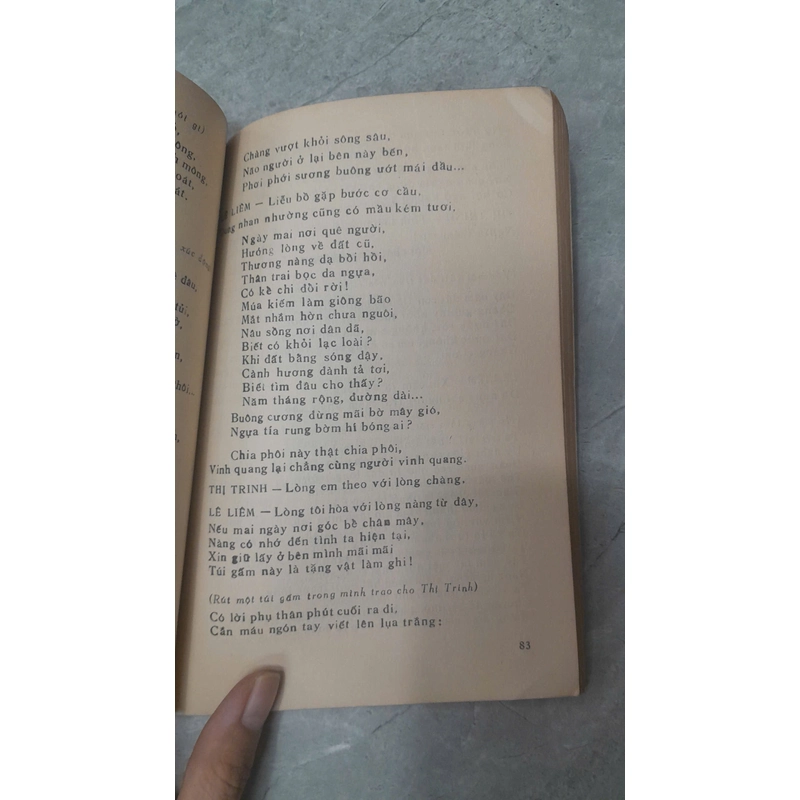 ốt gì)
ông,
n mông.
oát,
át.
xúc động
đâu.
tủi.
ờ,
n,
hôi..
Chàng vượt khỏi sông sâu,
Não người ở lại bên này bến,
Phơi phới sương buông ướt mái đầu...
LIÊM — Liễu bồ gặp bước cơ cầu.
nhan nhường cũng có mầu kém tươi.
Ngày mai nơi quê người,
Hướng lòng về đất cũ.
Thương nàng dạ bồi hồi,
Thân trai bọc da ngựa,
Có kề chi dời rời!
Múa kiếm làm giông bão
Mắt nhắm hờn chưa nguôi,
Nâu sồng nơi dân dã,
Biết có khỏi lạc loài?
Khi đất bằng sóng dậy,
Cành hương dành tả tơi,
Biết tìm đâu cho thấy?
Năm tháng rộng, đường dài...
Buông cương dừng mãi bờ mây gió,
Ngựa tía rung bờm hí bóng ai?
Chia phôi này thật chia phôi,
Vinh quang lại chẳng cùng người vinh quang.
THỊ TRINH — Lòng em theo với lòng chàng.
LÊ LIÊM — Lòng tôi hòa với lòng nàng từ đây,
Nếu mai ngày nơi góc bề chân mây,
Nàng có nhớ đến tình ta hiện tại,
Xin giữ lấy ở bên mình mãi mãi
Túi gấm này là tặng vật làm ghi!
(Rút một túi gấm trong mình trao cho Thị Trinh)
Có lời phụ thân phút cuối ra đi,
Cắn máu ngón tay viết lên lụa trắng:
83